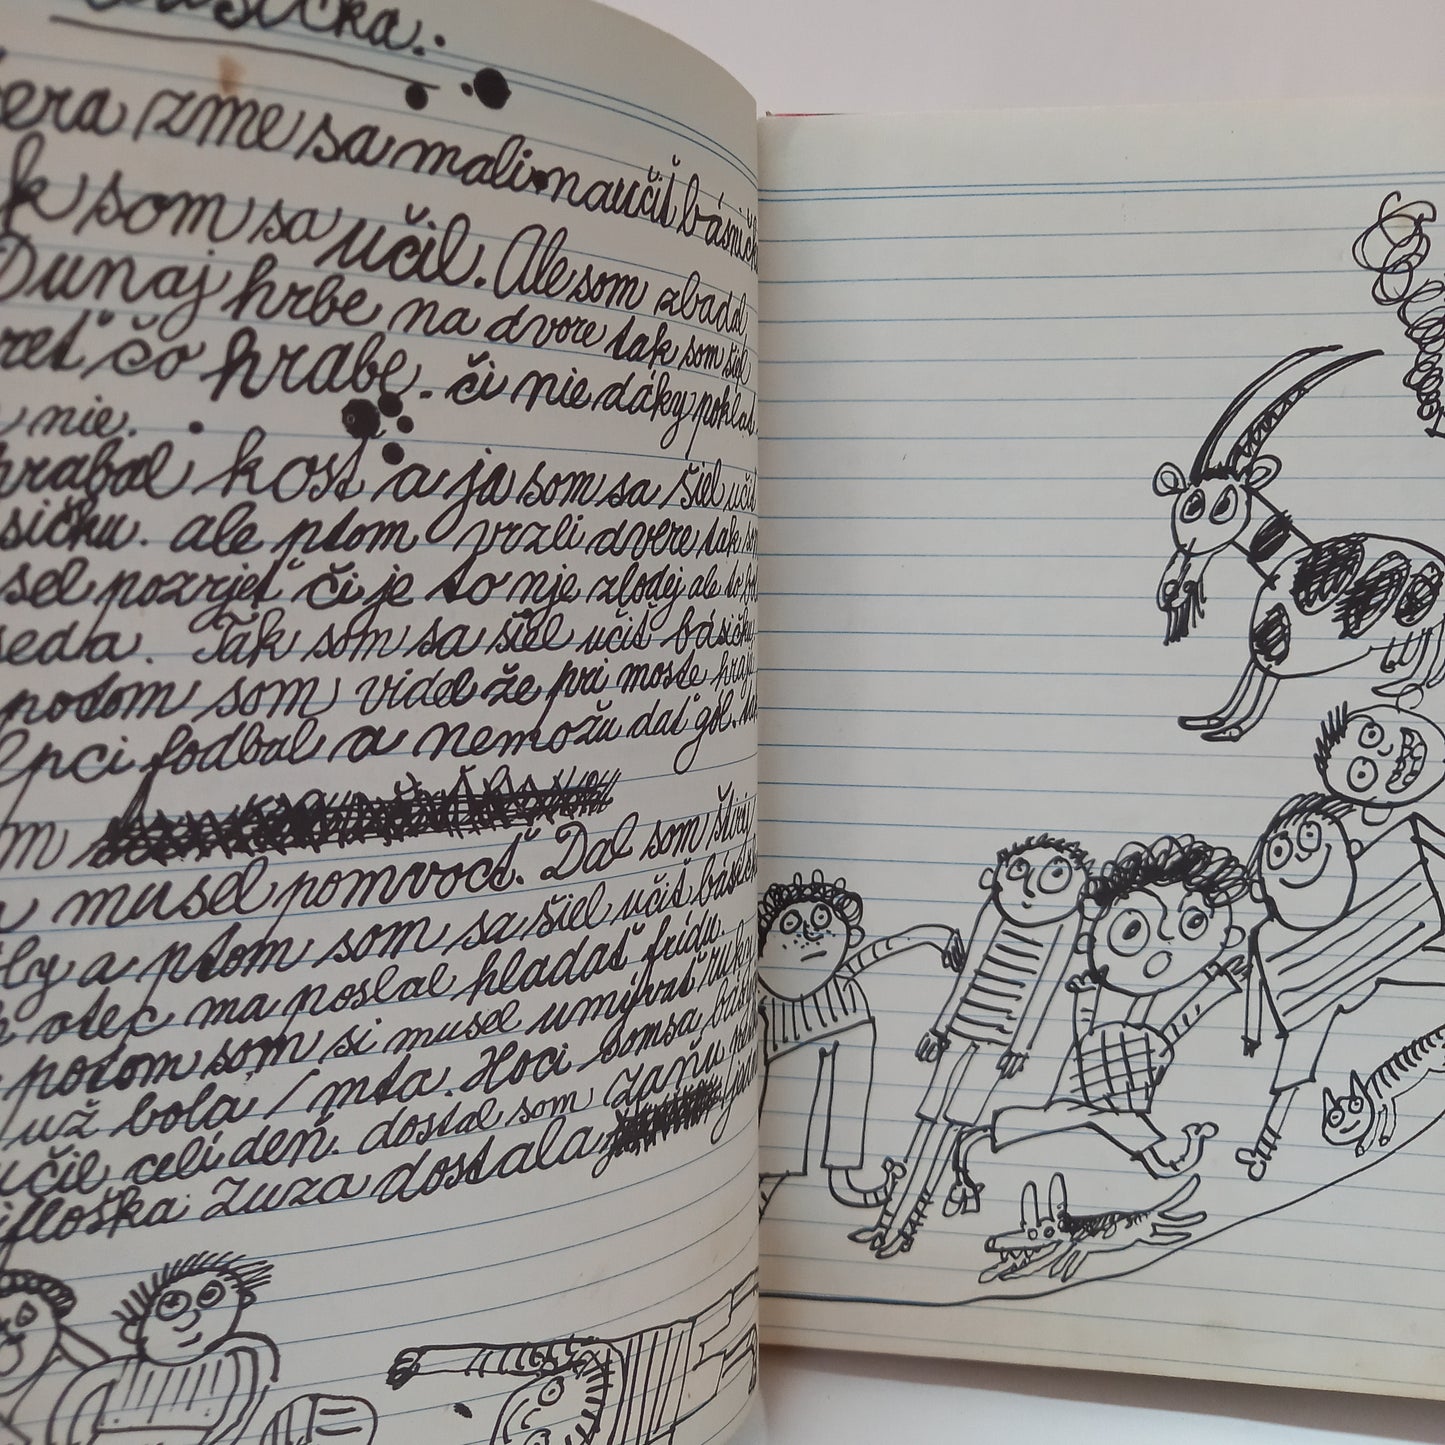 sička.
era zme sa mali naučiť básničk
k som sa učil. Ale som zbadal
Dunaj hrbe na dvore tak som šiel
reť čo hrabe. či nie dáky poklad.
nie.
hrabal kosť a ja som sa šiel učiť
sičku. ale ptom vrzli dvere tak som
sel pozrjeť či je to nje zlodej ale to bol
seda. Tak som sa šiel učiť básičku
potom som videl že pri moste hrajú
lpci fodbal a nemožu dať gól. tak
m
musel pomvocť. Dal som štiri
ly a ptom som sa šiel učiť básičku
otec ma poslal hladať frídu.
potom som si musel umívať ruky
už bola tma. Hoci som sa básičk
učil celi deň. dostal som zaňu
ifloška Zuza dostala